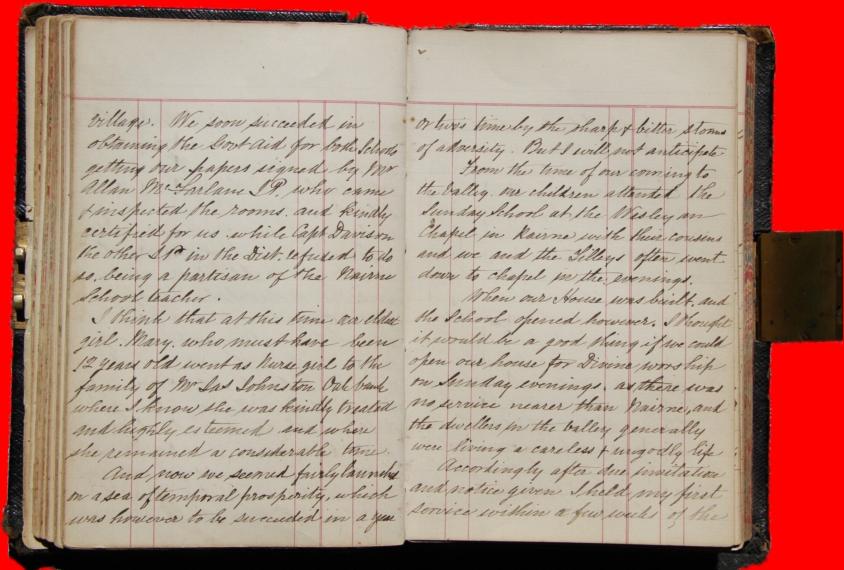 village. We soon succeeded in
obtaining the Govt Aid for both Schools
getting our papers signed by Mr
Allan McFarlane J.P. who came
& inspected the rooms, and kindly
certified for us, while Capt Davison
the other J.P. in the Dist. refused to do
so, being a partisan of the Nairne
School teacher.
I think that at this time our eldest
girl, Mary, who must have been
12 years old went as Nurse girl to the
family of Mr Jas Johnston Oak bank
where I know she was kindly treated
and highly esteemed and where
she remained a considerable time.
And now we seemed fairly launched
on a sea of temporal prosperity, which
was however to be succeeded in a year
or two's time by the sharp & bitter storms
of adversity. But I will not anticipate
From the time of our coming to
the Valley, our children attended the
Sunday School at the Wesleyan
Chapel in Nairne with their cousins
and we and the Tilleys often went
down to chapel in the evenings.
When our House was built and
the School opened however, I thought
it would be a good thing if we could
open our house for Divine worship
on Sunday evenings, as there was
no service nearer than Nairne, and
the dwellers in the Valley generally
were living a careless & ungodly life
Accordingly after due invitation
and notice given I held my first
service within a few weeks of the